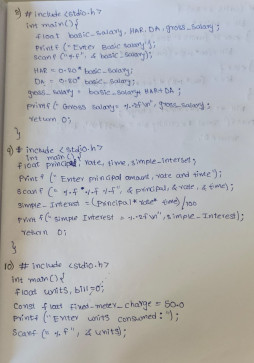 8) # include <stdio.h>
int main() {
float basic_salary, HAR, DA, gross_salary;
Printf ("Enter Basic salary");
Scanf ("%f", & basic_salary);
HAR = 0.20 * basic_salary;
DA = 0.80* basic_salary;
gross_salary = basic_salary HAR+DA;
printf ( Gross salary = %.2f\n", gross_salary;
return 0;
}
9) # include <stdio.h>
Int main() {
float principal, rate, time, simple_interest;
Print f (" Enter principal amount, rate and time");
Scanf (" %f %f %f", & principal, & rate, & time);
Simple_Interest = (Principal * rate* time) /100
Print f("simple Interest = %.2f\n", simple_Interest);
return 0;
}
10) # include <stdio.h>
int main() {
float units, bill=0;
Const float fixed_meter_charge = 50.0
Printf ("Enter units consumed:");
Scanf (" %f", & units);